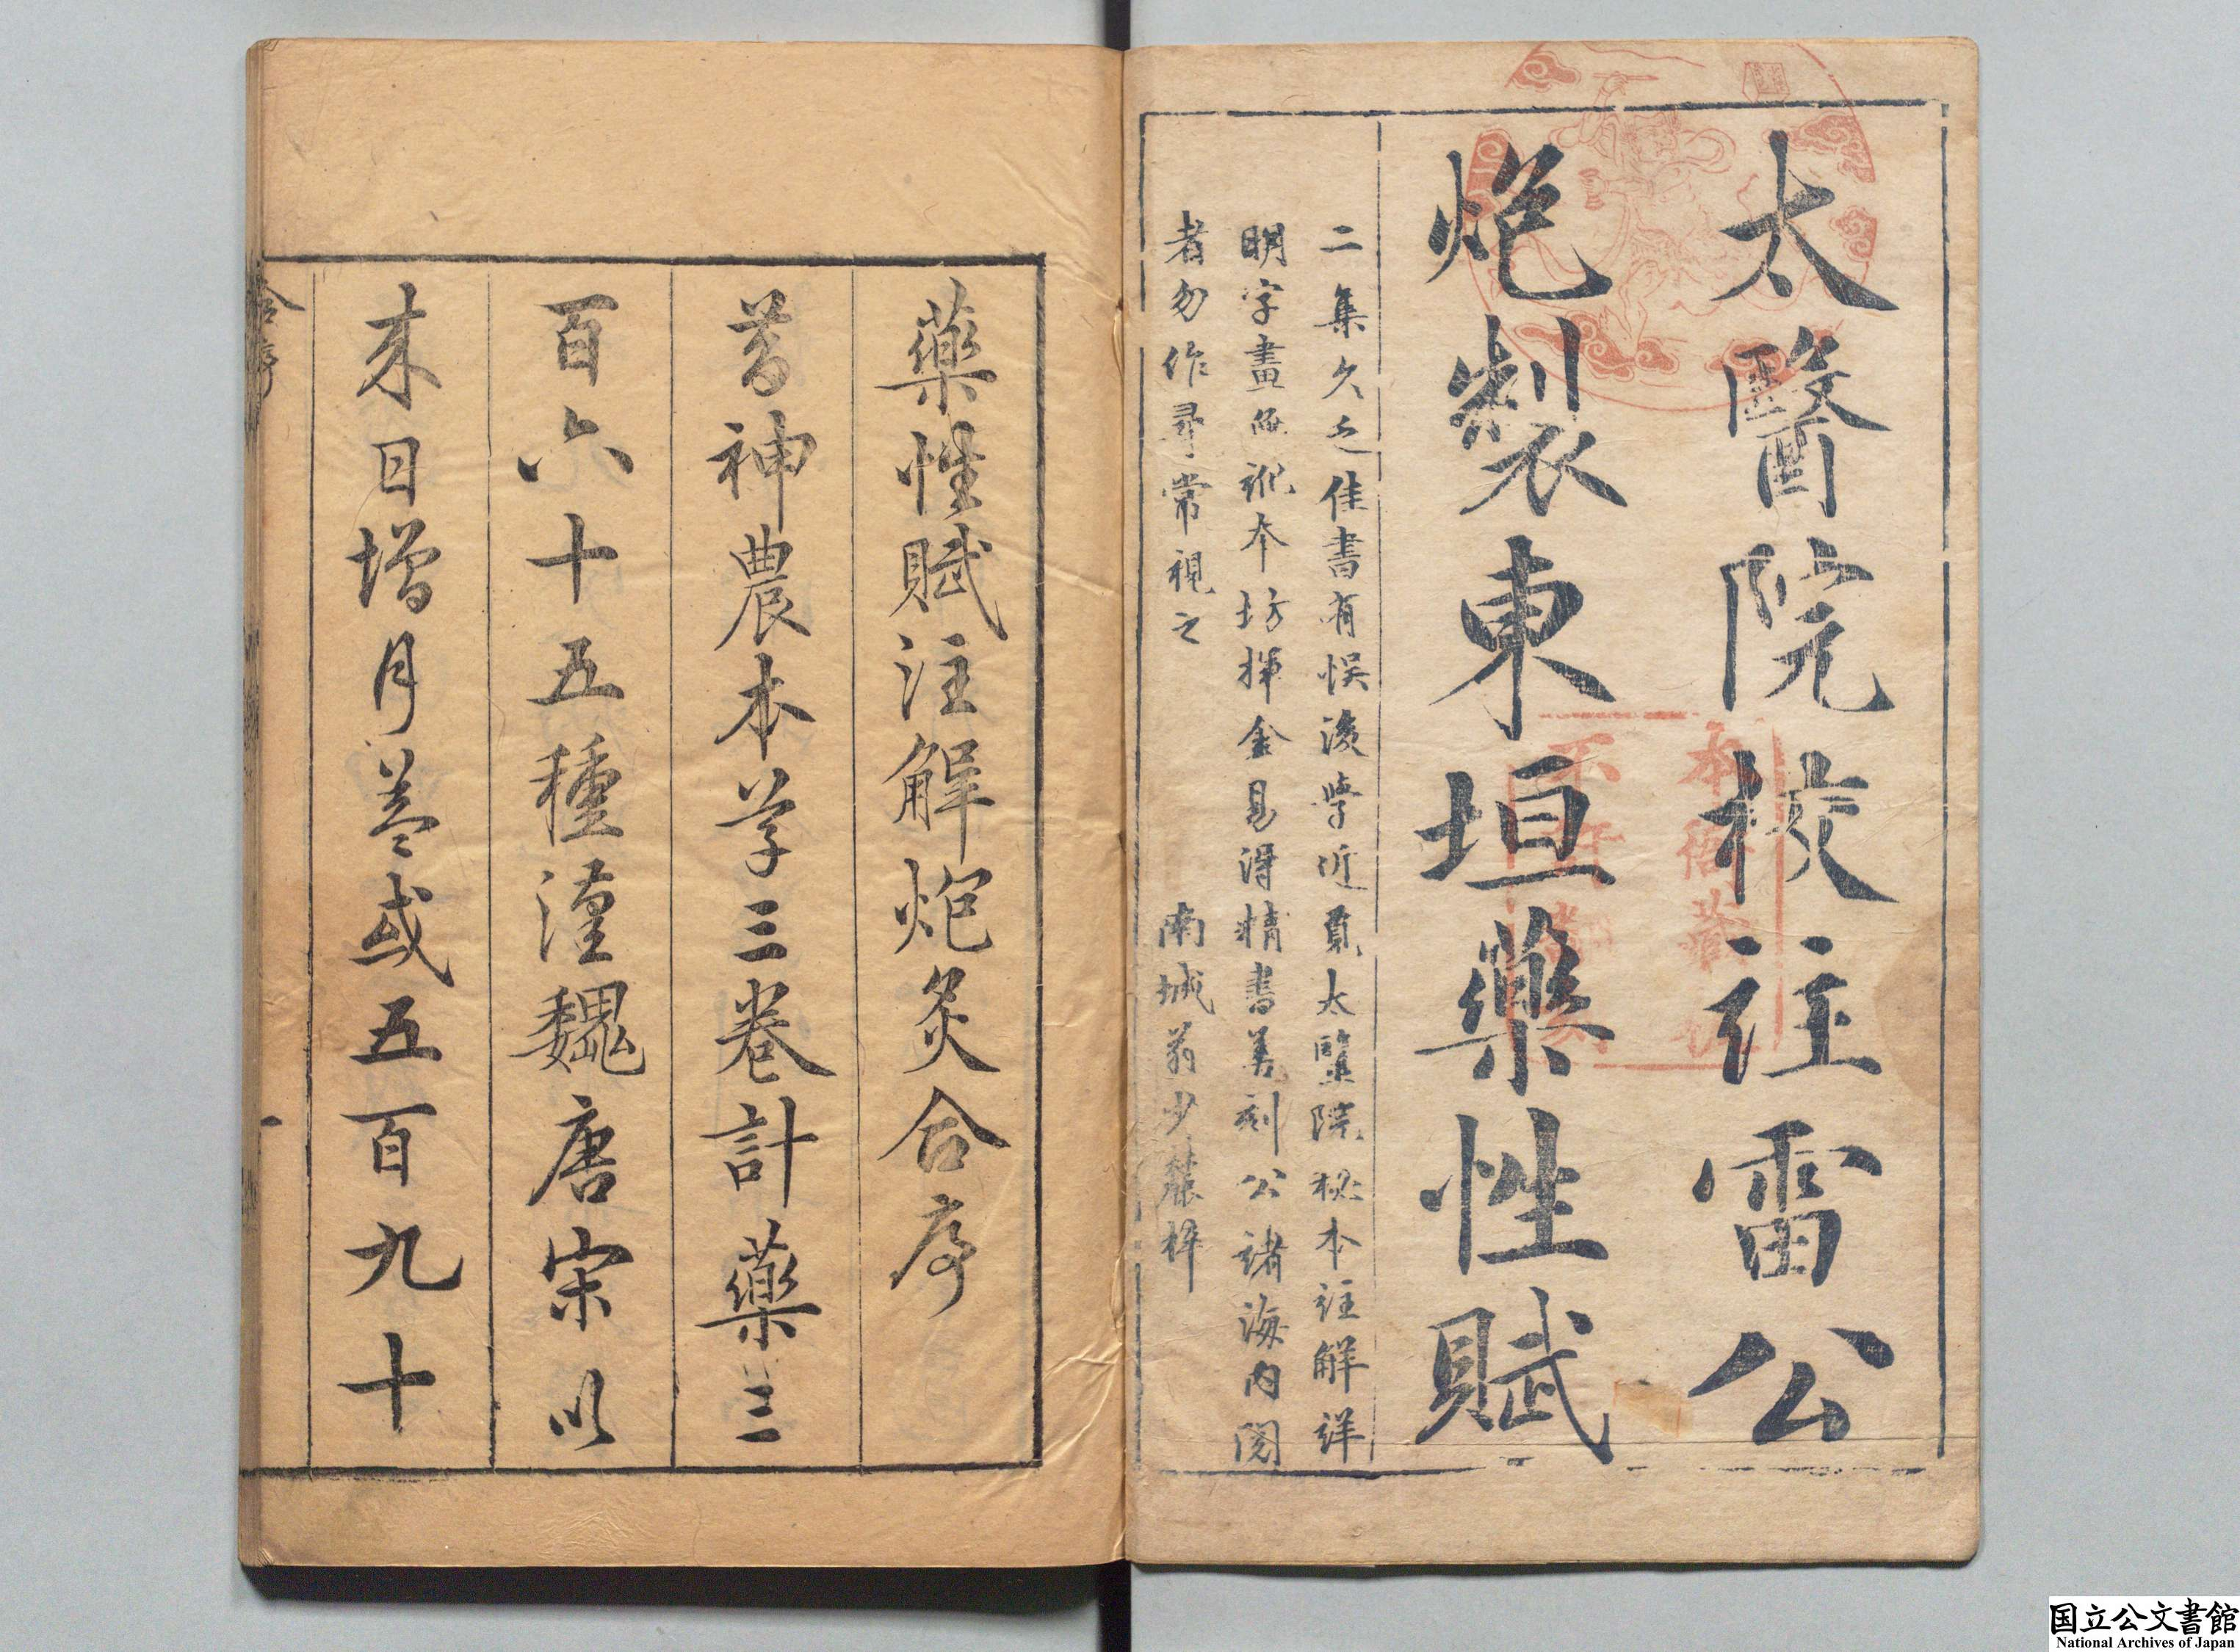 太醫院校註雷公
炮製東垣藥性賦
二集久乏佳書有悮後學近覓太醫院秘本註解詳
明字畫無訛本坊揮金易得精書善刻公諸海內閱
者勿作尋常視之　南城翁少麓梓
藥性賦注解炮炙合序
昔神農本草三卷計藥三
百六十五種漢魏唐宋以
來日增月益或五百九十
合序
一
国立公文書館
National Archives of Japan